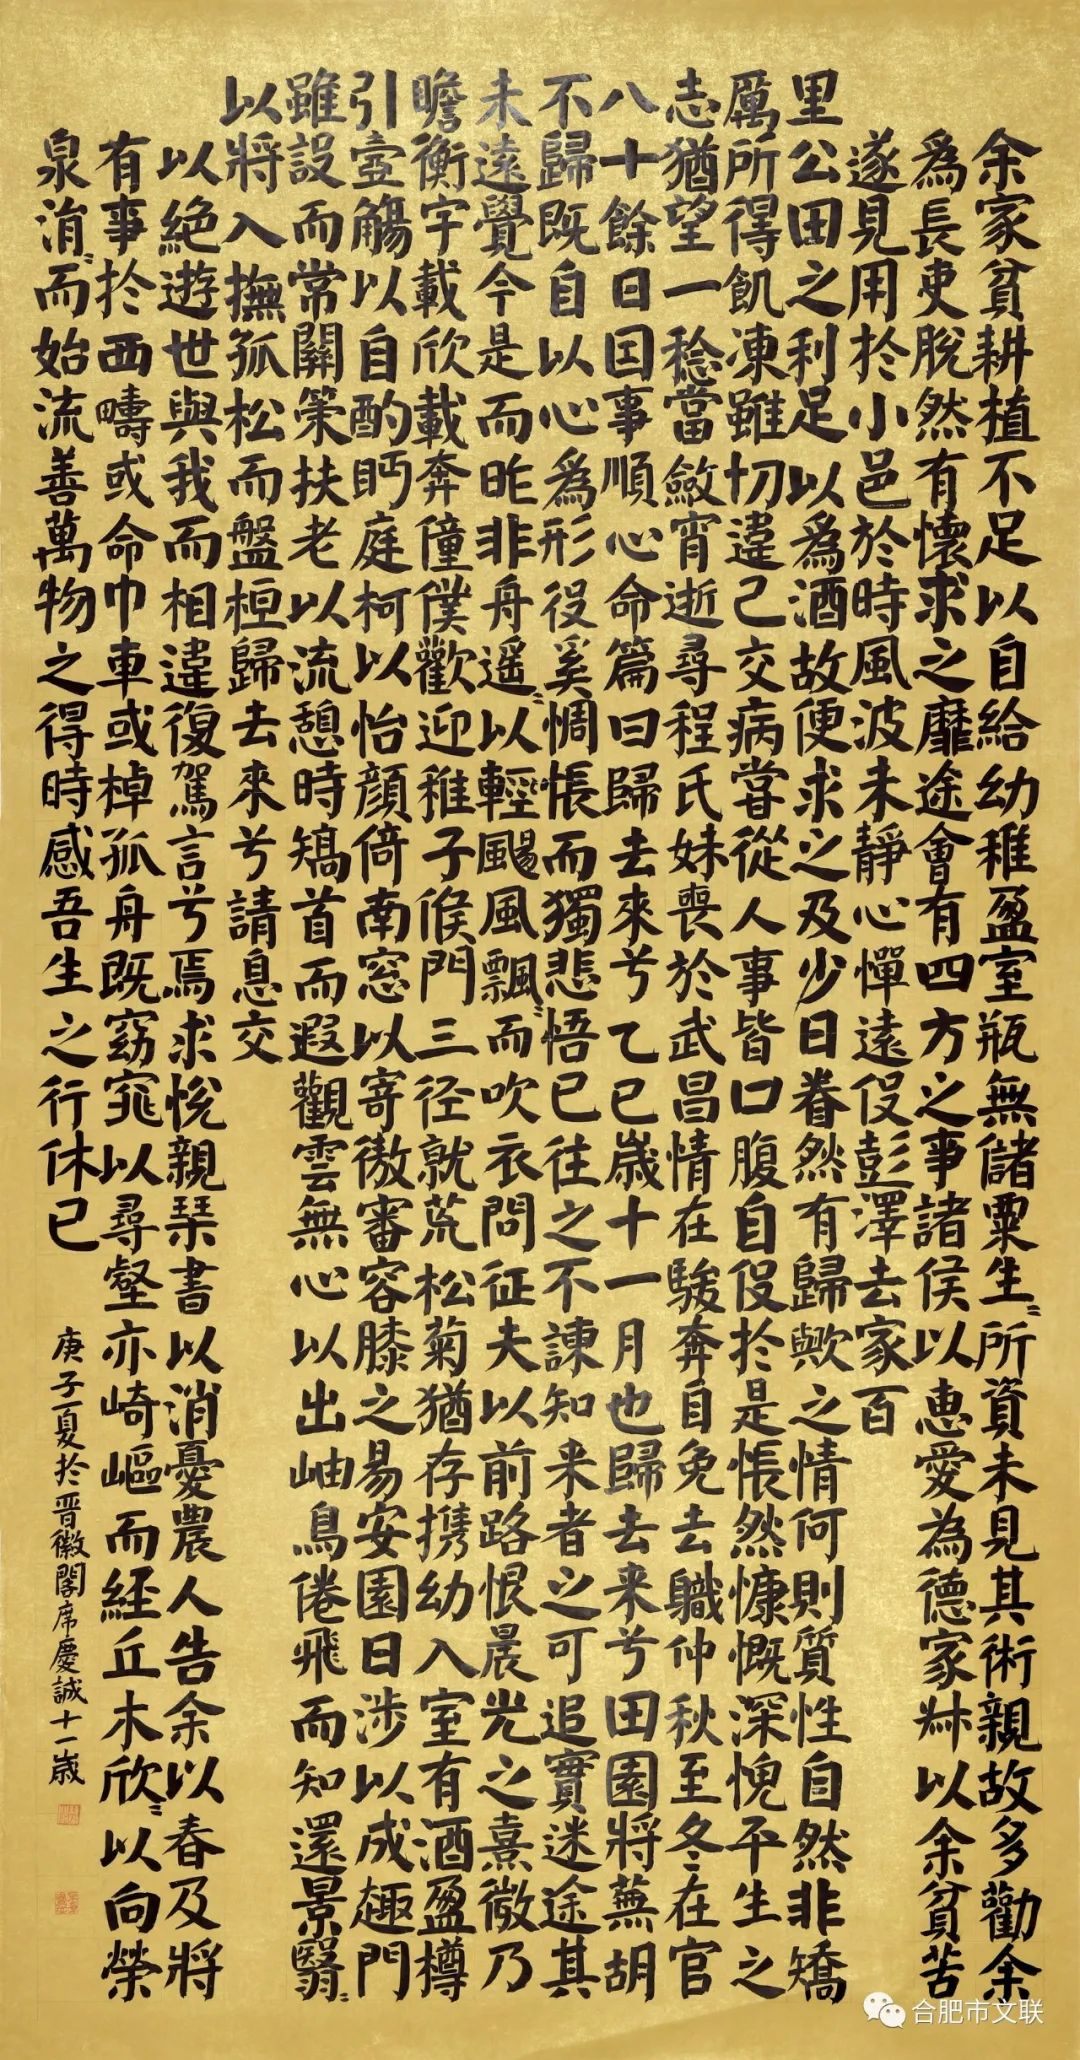 余家貧耕植不足以自給幼稚盈室瓶無儲粟生〻所資未見其術親故多勸余
為長吏脫然有懷求之靡途會有四方之事諸侯以惠愛為德家叔以余貧苦
遂見用於小邑於時風波未靜心憚遠役彭澤去家百
里公田之利足以為酒故便求之及少日眷然有歸歟之情何則質性自然非矯
厲所得飢凍雖切違己交病嘗從人事皆口腹自役於是悵然慷慨深愧平生之
志猶望一稔當斂宵逝尋程氏妹喪於武昌情在駿奔自免去職仲秋至冬在官
八十餘日因事順心命篇曰歸去來兮乙巳歲十一月也歸去来兮田園將蕪胡
不歸既自以心為形役奚惆悵而獨悲悟已往之不諫知来者之可追實迷途其
未遠覺今是而昨非舟遥〻以輕颺風飄〻而吹衣問征夫以前路恨晨光之熹微乃
瞻衡宇載欣載奔僮僕歡迎稚子候門三径就荒松菊猶存携幼入室有酒盈樽
引壺觴以自酌眄庭柯以怡顏倚南窓以寄傲審容膝之易安園日涉以成趣門
雖設而常關策扶老以流憩時矯首而遐觀雲無心以出岫鳥倦飛而知還景翳〻
以將入撫孤松而盤桓歸去來兮請息交
以絕遊世與我而相違復駕言兮焉求悅親琴書以消憂農人告余以春及將
有事於西疇或命巾車或棹孤舟既窈窕以尋壑亦崎嶇而経丘木欣〻以向榮
泉涓〻而始流善萬物之得時感吾生之行休已
庚子夏於晉徽閣席慶誠十一歲
合肥市文联